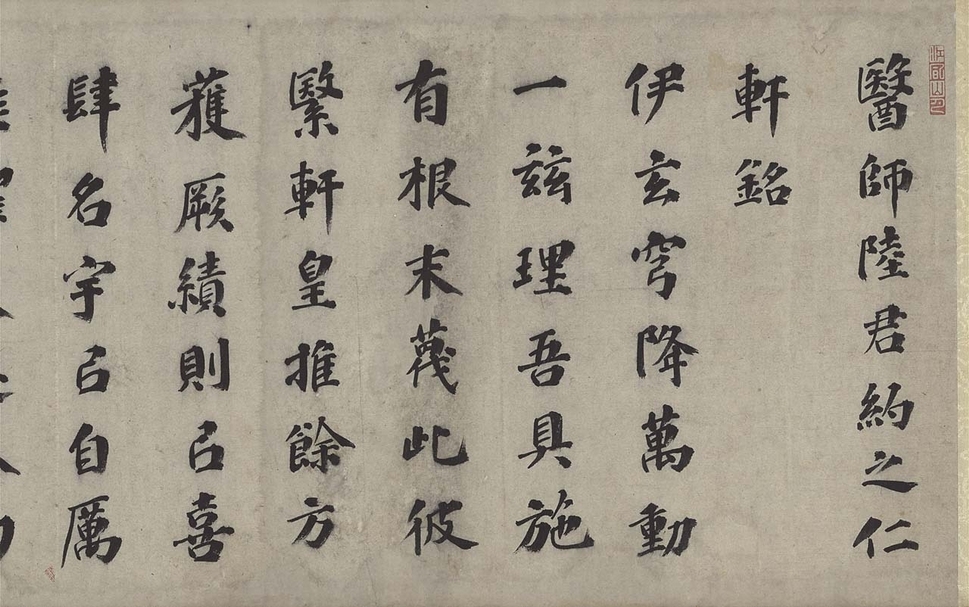 醫師陸君約之仁
軒銘
伊玄穹降萬動
一茲理吾具施
有根末蔑此彼
繄軒皇推餘方
獲厥績則㠯喜
肆名宇㠯自厲